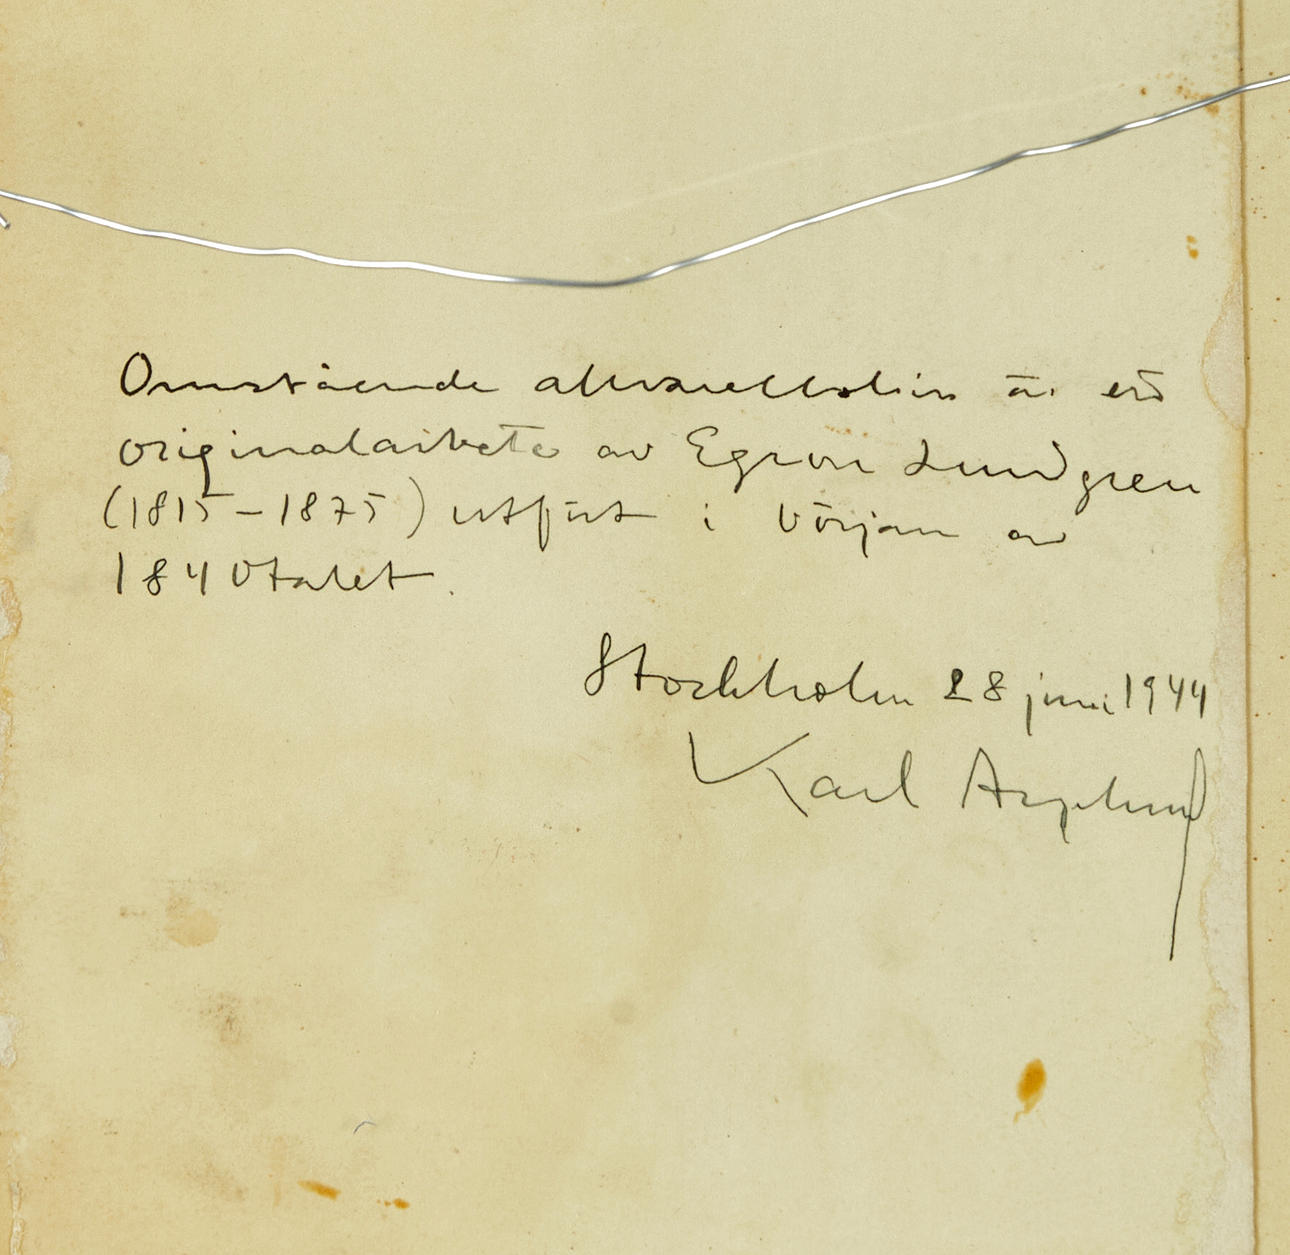 Omstående akvarellstudie är ett
originalarbete av Egron Lundgren
(1815-1875) utfört i början av
1840talet.
Stockholm 28 juni 1944
Karl Asplund